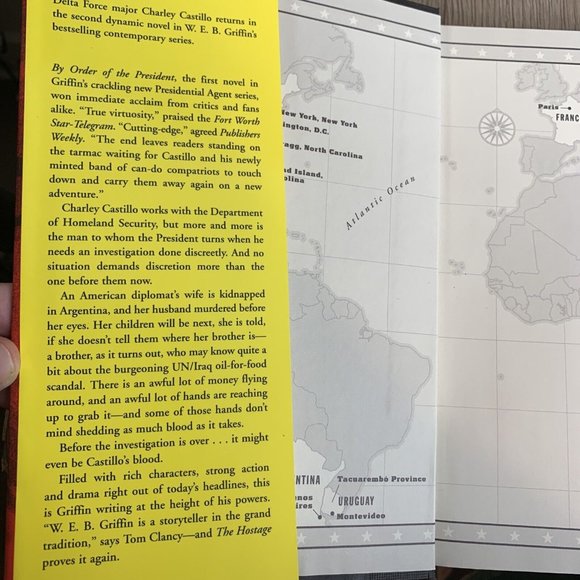 Delta Force major Charley Castillo returns in
the second dynamic novel in W. E. B. Griffin's
bestselling contemporary series.
By Order of the President, the first novel in
Griffin's crackling new Presidential Agent series,
won immediate acclaim from critics and fans
alike. "True virtuosity," praised the Fort Worth
Star-Telegram. "Cutting-edge," agreed Publishers
Weekly. "The end leaves readers standing on
the tarmac waiting for Castillo and his newly
minted band of can-do compatriots to touch
down and carry them away again on a new
adventure."
Charley Castillo works with the Department
of Homeland Security, but more and more is
the man to whom the President turns when he
needs an investigation done discreetly. And no
situation demands discretion more than the
one before them now.
An American diplomat's wife is kidnapped
in Argentina, and her husband murdered before
her eyes. Her children will be next, she is told,
if she doesn't tell them where her brother is—
a brother, as it turns out, who may know quite a
bit about the burgeoning UN/Iraq oil-for-food
scandal. There is an awful lot of money flying
around, and an awful lot of hands are reaching
up to grab it—and some of those hands don't
mind shedding as much blood as it takes.
Before the investigation is over . . . it might
even be Castillo's blood.
Filled with rich characters, strong action
and drama right out of today's headlines, this
is Griffin writing at the height of his powers.
"W. E. B. Griffin is a storyteller in the grand
tradition," says Tom Clancy—and The Hostage
proves it again.
New York, New York
ington, D.C.
agg, North Carolina
d Island,
olina
Atlantic Ocean
ENTINA
Tacuarembó Province
nos
ires
URUGUAY
Montevideo
Paris
FRANC